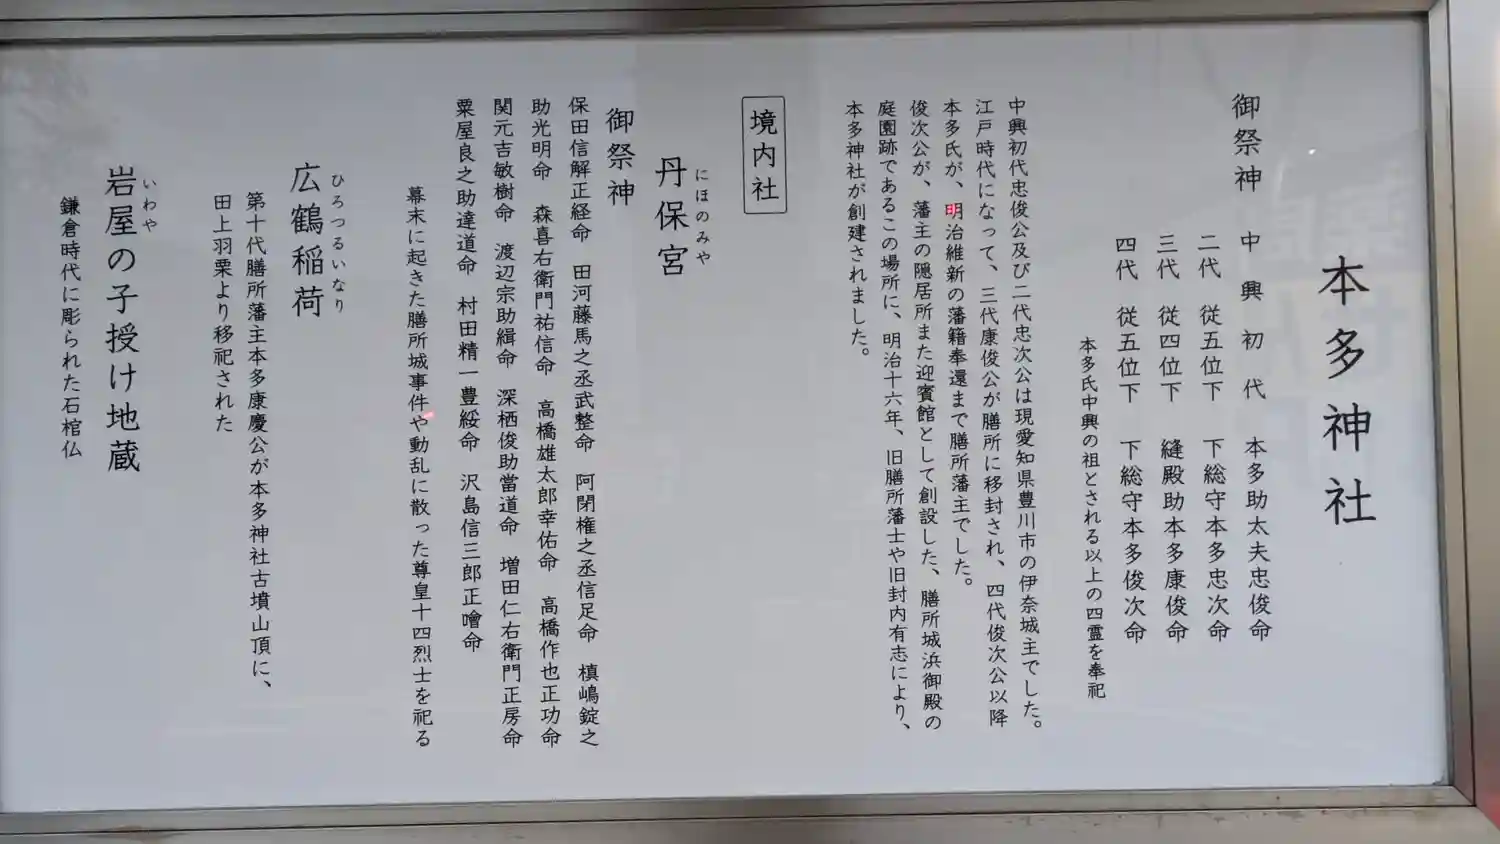 本多神社
御祭神　中興初代　本多助太夫忠俊命
二代　従五位下　下総守本多忠次命
三代　従四位下　縫殿助本多康俊命
四代　従五位下　下総守本多俊次命
本多氏中興の祖とされる以上の四霊を奉祀
中興初代忠俊公及び二代忠次公は現愛知県豊川市の伊奈城主でした。
江戸時代になって、三代康俊公が膳所に移封され、四代俊次公以降
本多氏が、明治維新の藩籍奉還まで膳所藩主でした。
俊次公が、藩主の隠居所また迎賓館として創設した、膳所城浜御殿の
庭園跡であるこの場所に、明治十六年、旧膳所藩士や旧封内有志により、
本多神社が創建されました。
境内社
丹保宮
にほのみや
御祭神
保田信解正経命　田河藤馬之丞武整命　阿閉権之丞信足命　槙嶋錠之
助光明命　森喜右衛門祐信命　高橋雄太郎幸佑命　高橋作也正功命
関元吉敏樹命　渡辺宗助緝命　深栖俊助當道命　増田仁右衛門正房命
粟屋良之助達道命　村田精一豊綏命　沢島信三郎正噲命
幕末に起きた膳所城事件や動乱に散った尊皇十四烈士を祀る
広鶴稲荷
ひろつるいなり
第十代膳所藩主本多康慶公が本多神社古墳山頂に、
田上羽栗より移祀された
岩屋の子授け地蔵
いわや
鎌倉時代に彫られた石棺仏